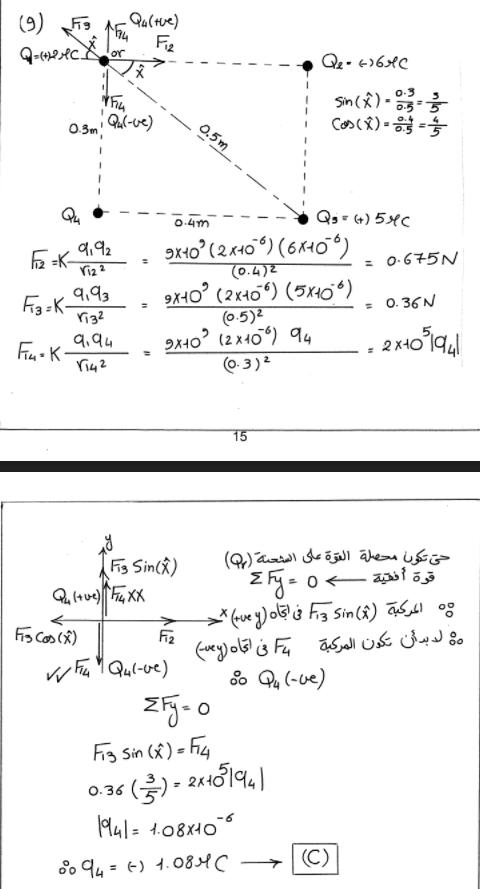 (9)
F13 F14 Q4(+ve)
or F12
Q1=(+)2μC x̂ x̂
Q2 = (-)6μC
F14
Q4(-ve)
sin(x̂) = 0.3/0.5 = 3/5
cos(x̂) = 0.4/0.5 = 4/5
0.3m 0.5m
Q4 0.4m Q3 = (+) 5μC
F12 = K q1q2/r12² = 9×10⁹ (2×10⁻⁶) (6×10⁻⁶)/(0.4)² = 0.675N
F13 = K q1q3/r13² = 9×10⁹ (2×10⁻⁶) (5×10⁻⁶)/(0.5)² = 0.36N
F14 = K q1q4/r14² = 9×10⁹ (2×10⁻⁶) q4/(0.3)² = 2×10⁵|q4|
15
y
F13 Sin(x̂)
Q4(+ve) F14 XX
x
F13 Cos(x̂) F12
✓✓ F14 Q4(-ve)
حتى تكون محصلة القوة على الشحنة (Q1)
قوة أفقية ← ΣFy = 0
∵ المركبة F13 sin(x̂) في اتجاه (+ve y)
∴ لابد أن تكون المركبة F14 في اتجاه (-ve y)
∴ Q4 (-ve)
ΣFy = 0
F13 sin(x̂) = F14
0.36 (3/5) = 2×10⁵|q4|
|q4| = 1.08×10⁻⁶
∴ q4 = (-) 1.08μC → (C)